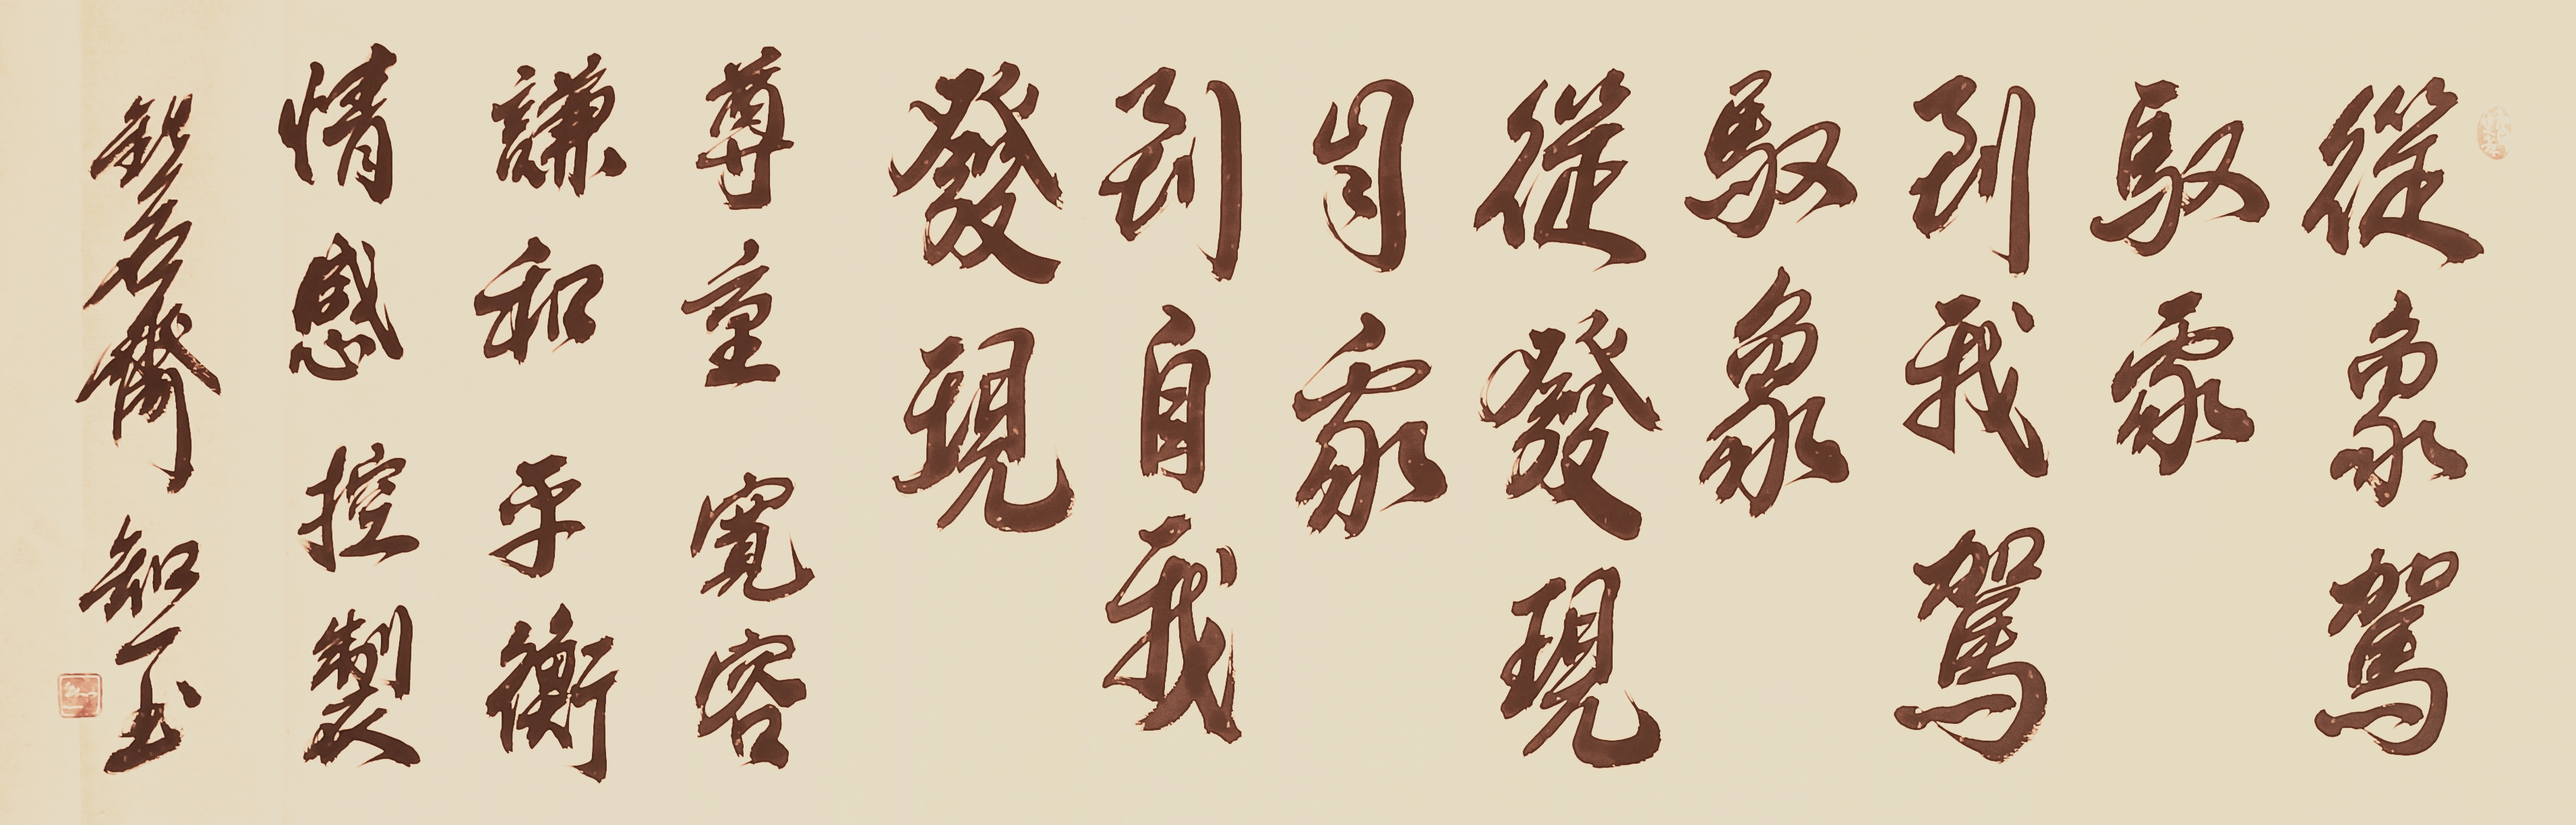 從象駕
馭家
到我駕
馭象
從發現
自家
到自我
發現
尊重 寬容
謙和 平衡
情感 控製
齋